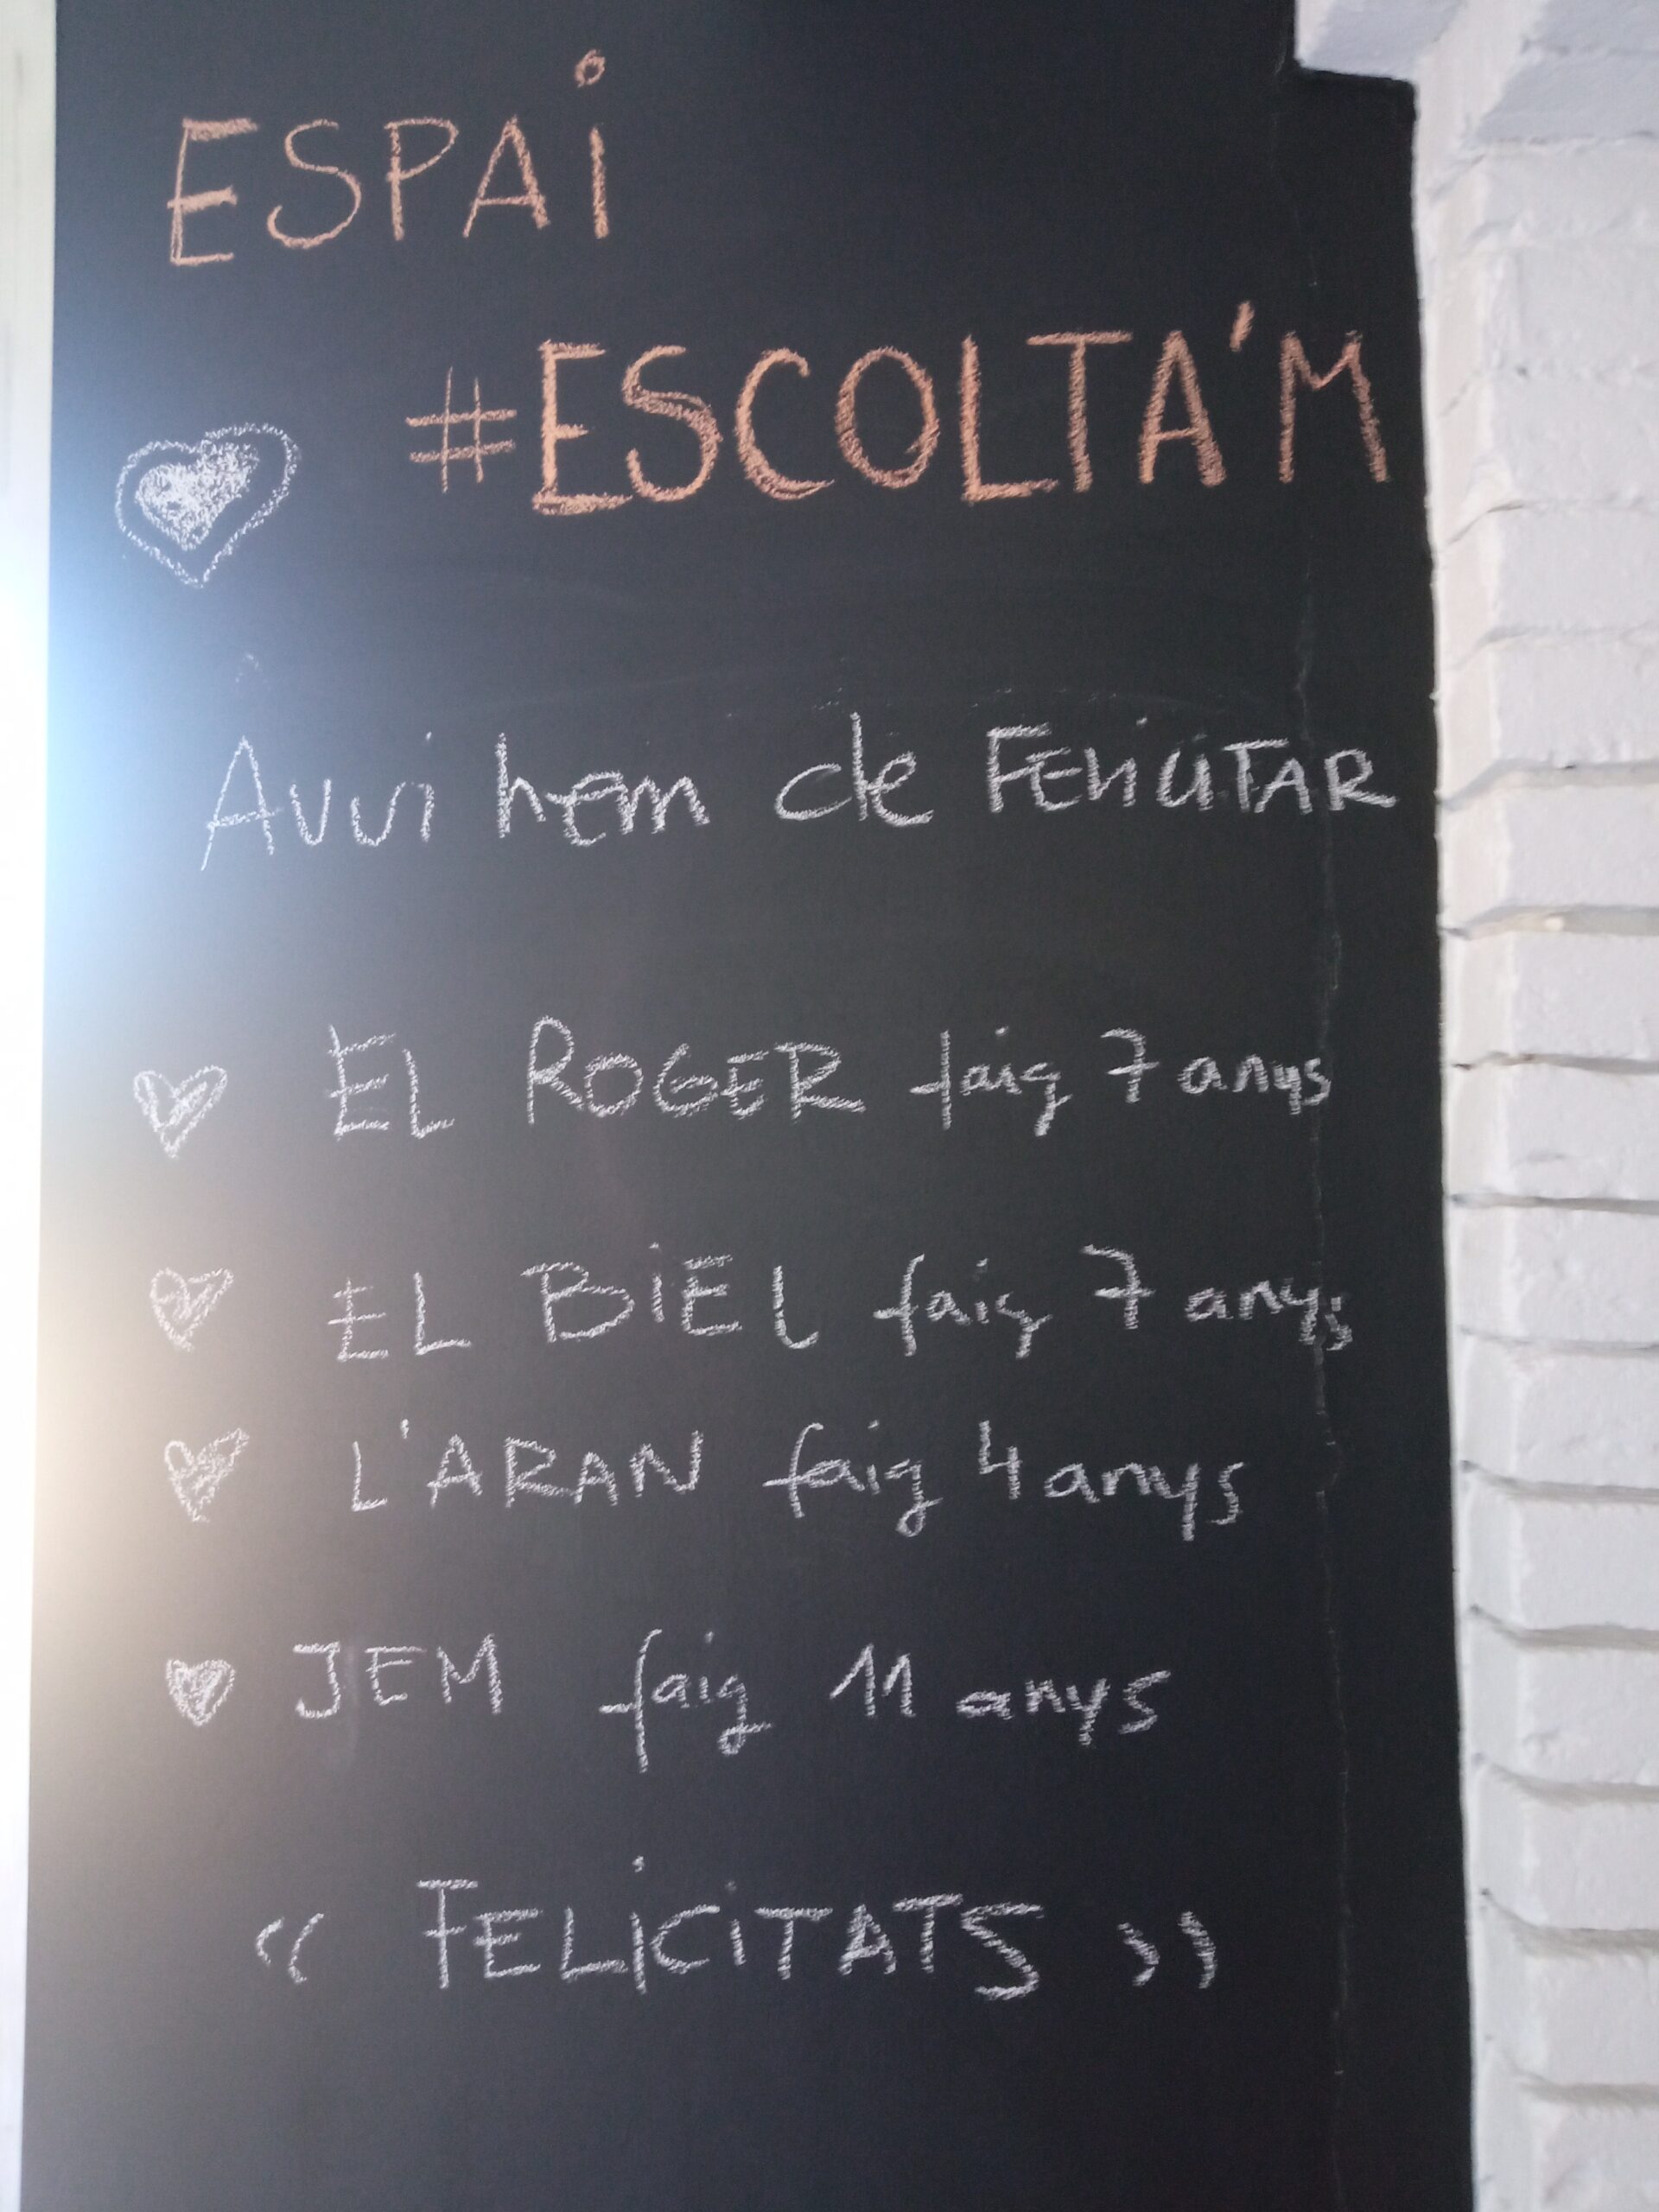 ESPAi
#ESCOLTA'M
Avui hem de FELICITAR
EL ROGER faig 7 anys
EL BiEL faig 7 anys
L'ARAN faig 4 anys
JEM faig 11 anys
« FELiCiTATS »